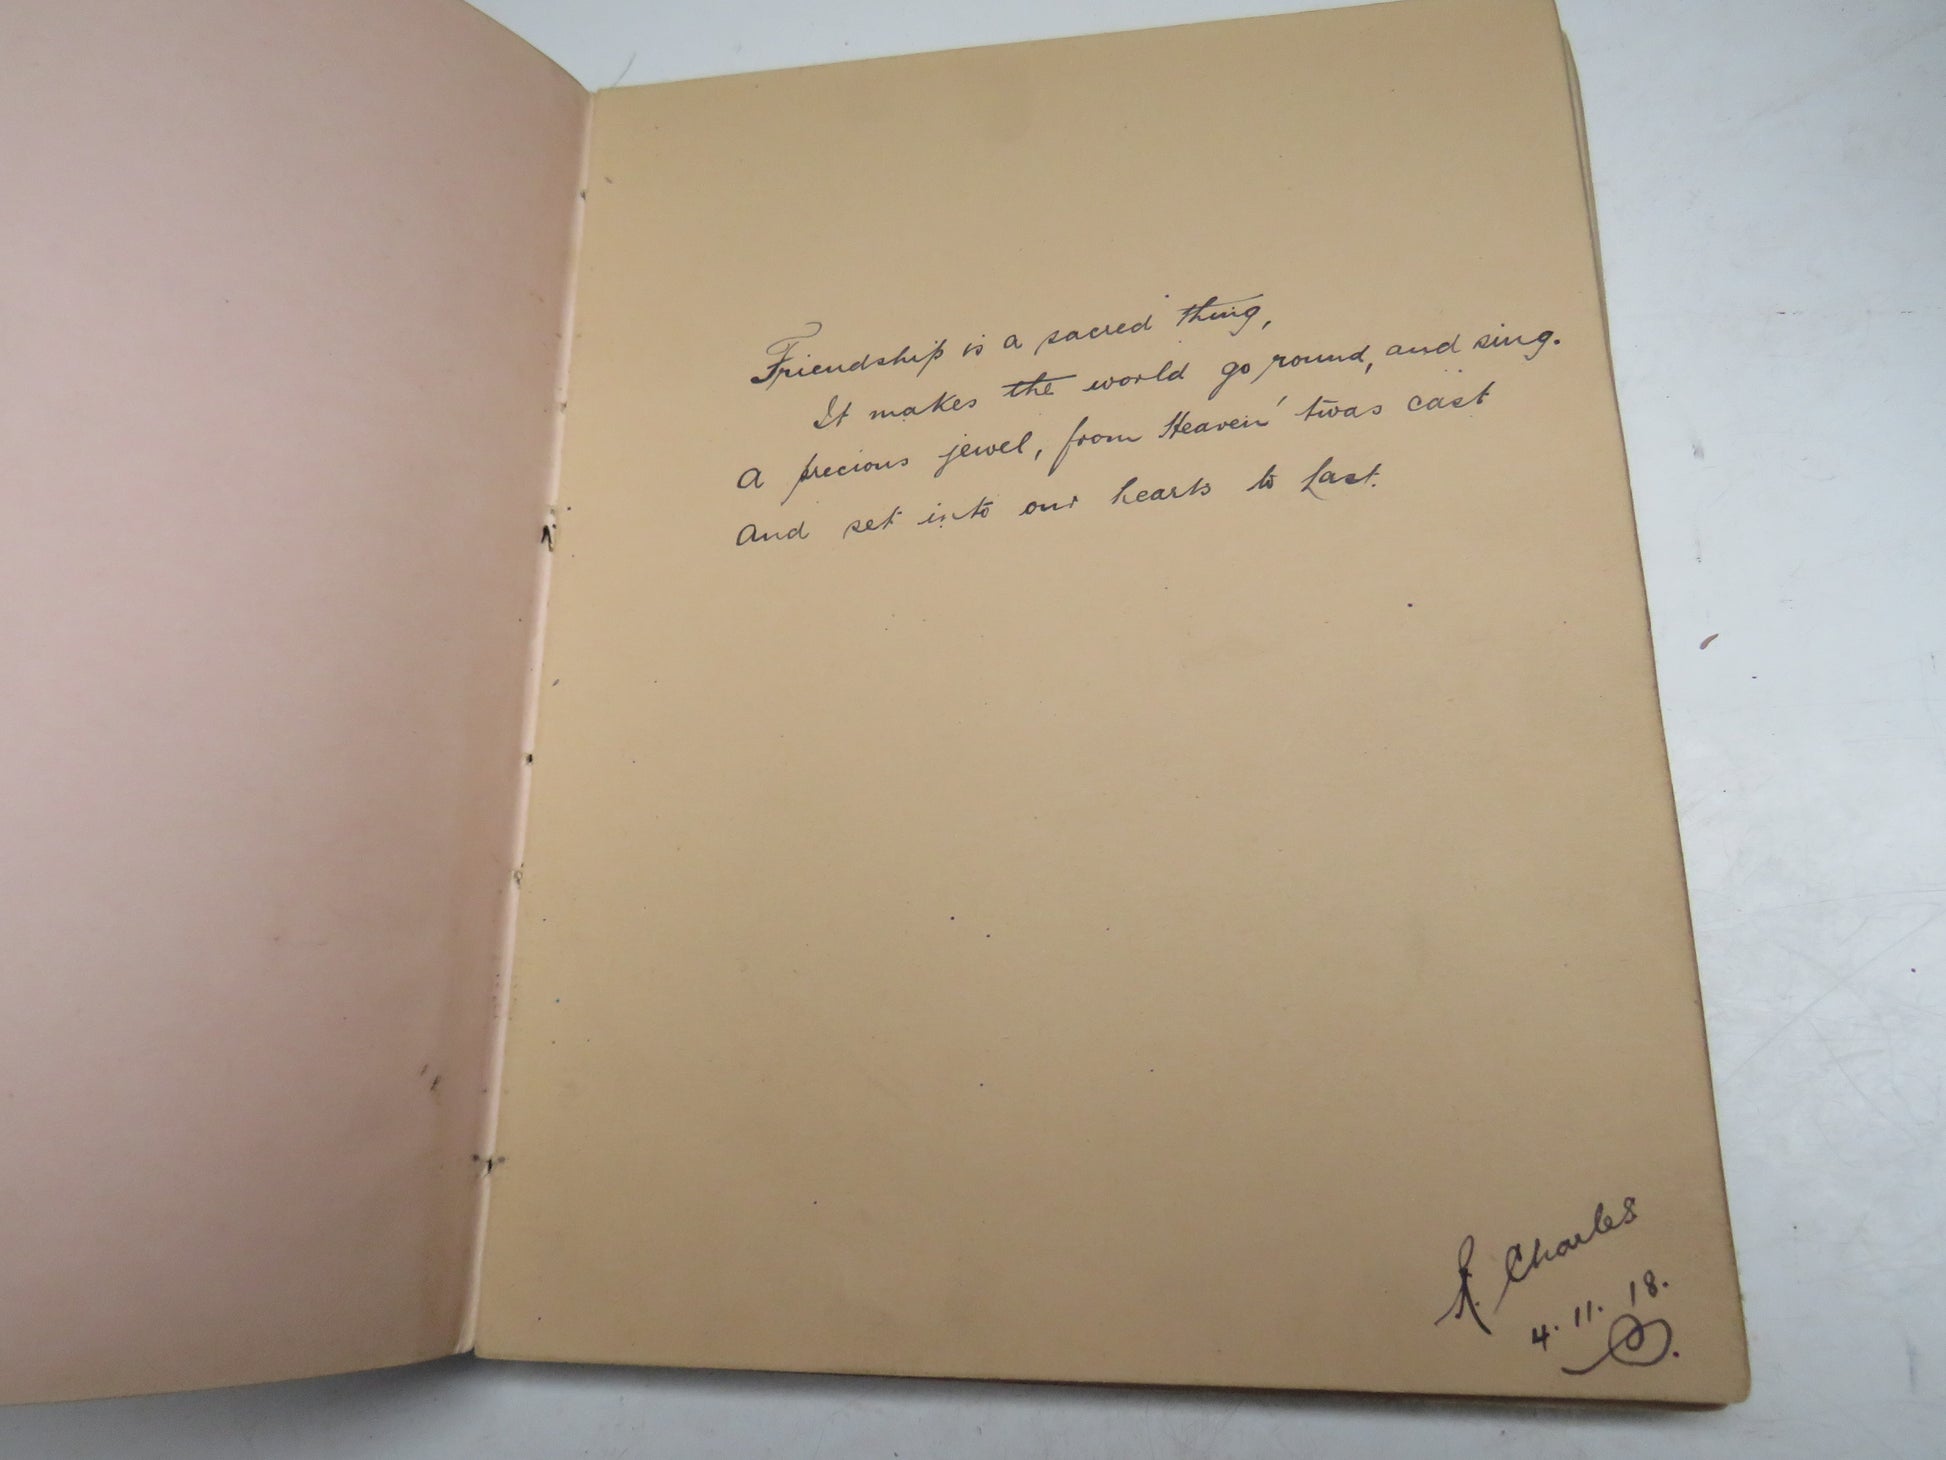 Friendship is a sacred thing,
It makes the world go round, and sing.
A precious jewel, from Heaven 'twas cast
And set into our hearts to last.
Charles
4.11.18.